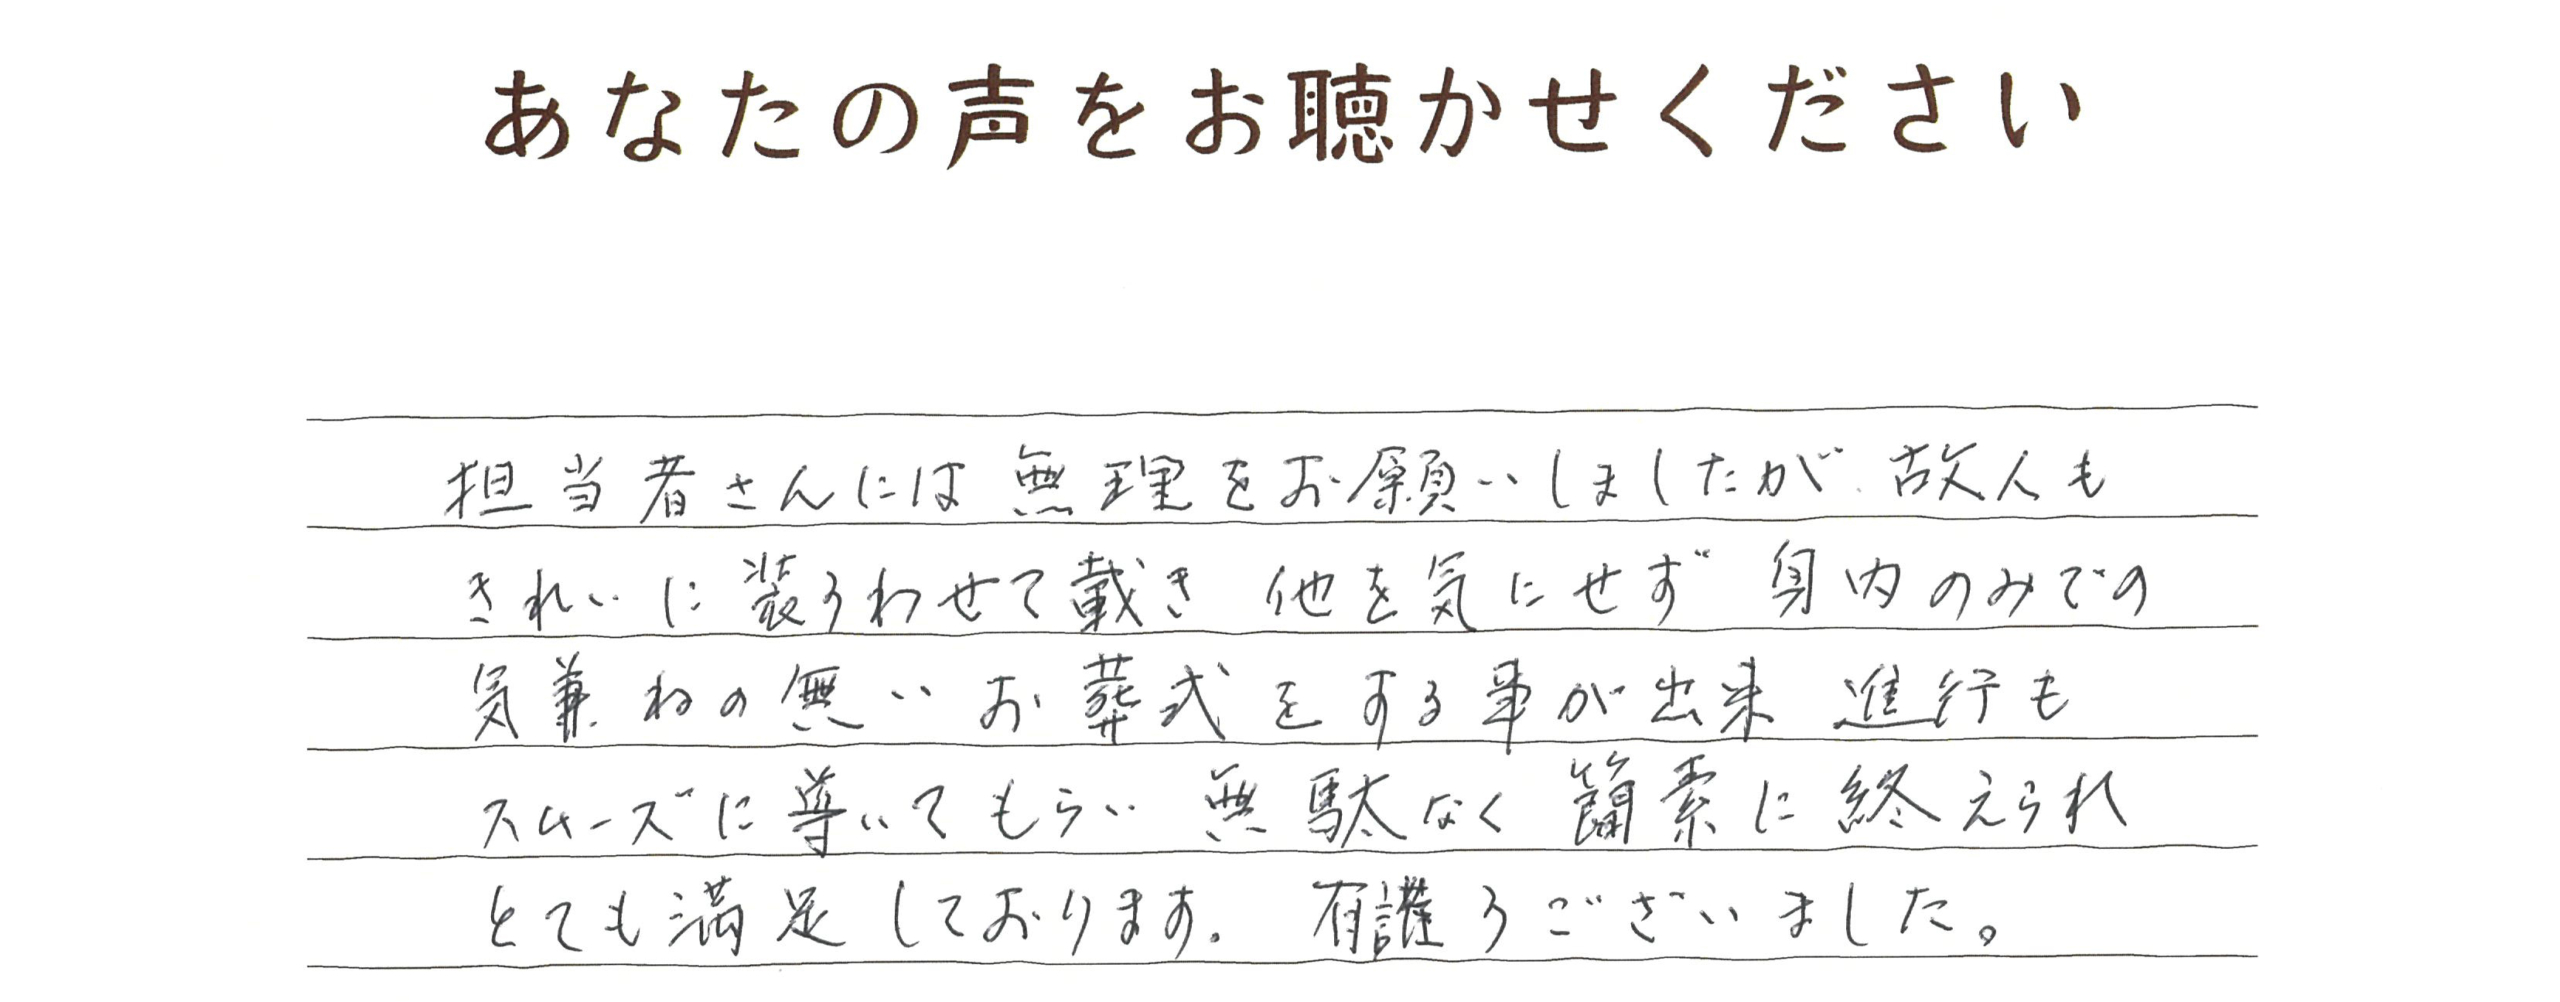 あなたの声をお聴かせください
担当者さんには無理をお願いしましたが、故人も
きれいに装うわせて戴き 他を気にせず 身内のみでの
気兼ねの無い お葬式をする事が出来 進行も
スムーズに導いてもらい 無駄なく簡素に終えられ
とても満足しております。 有護うございました。